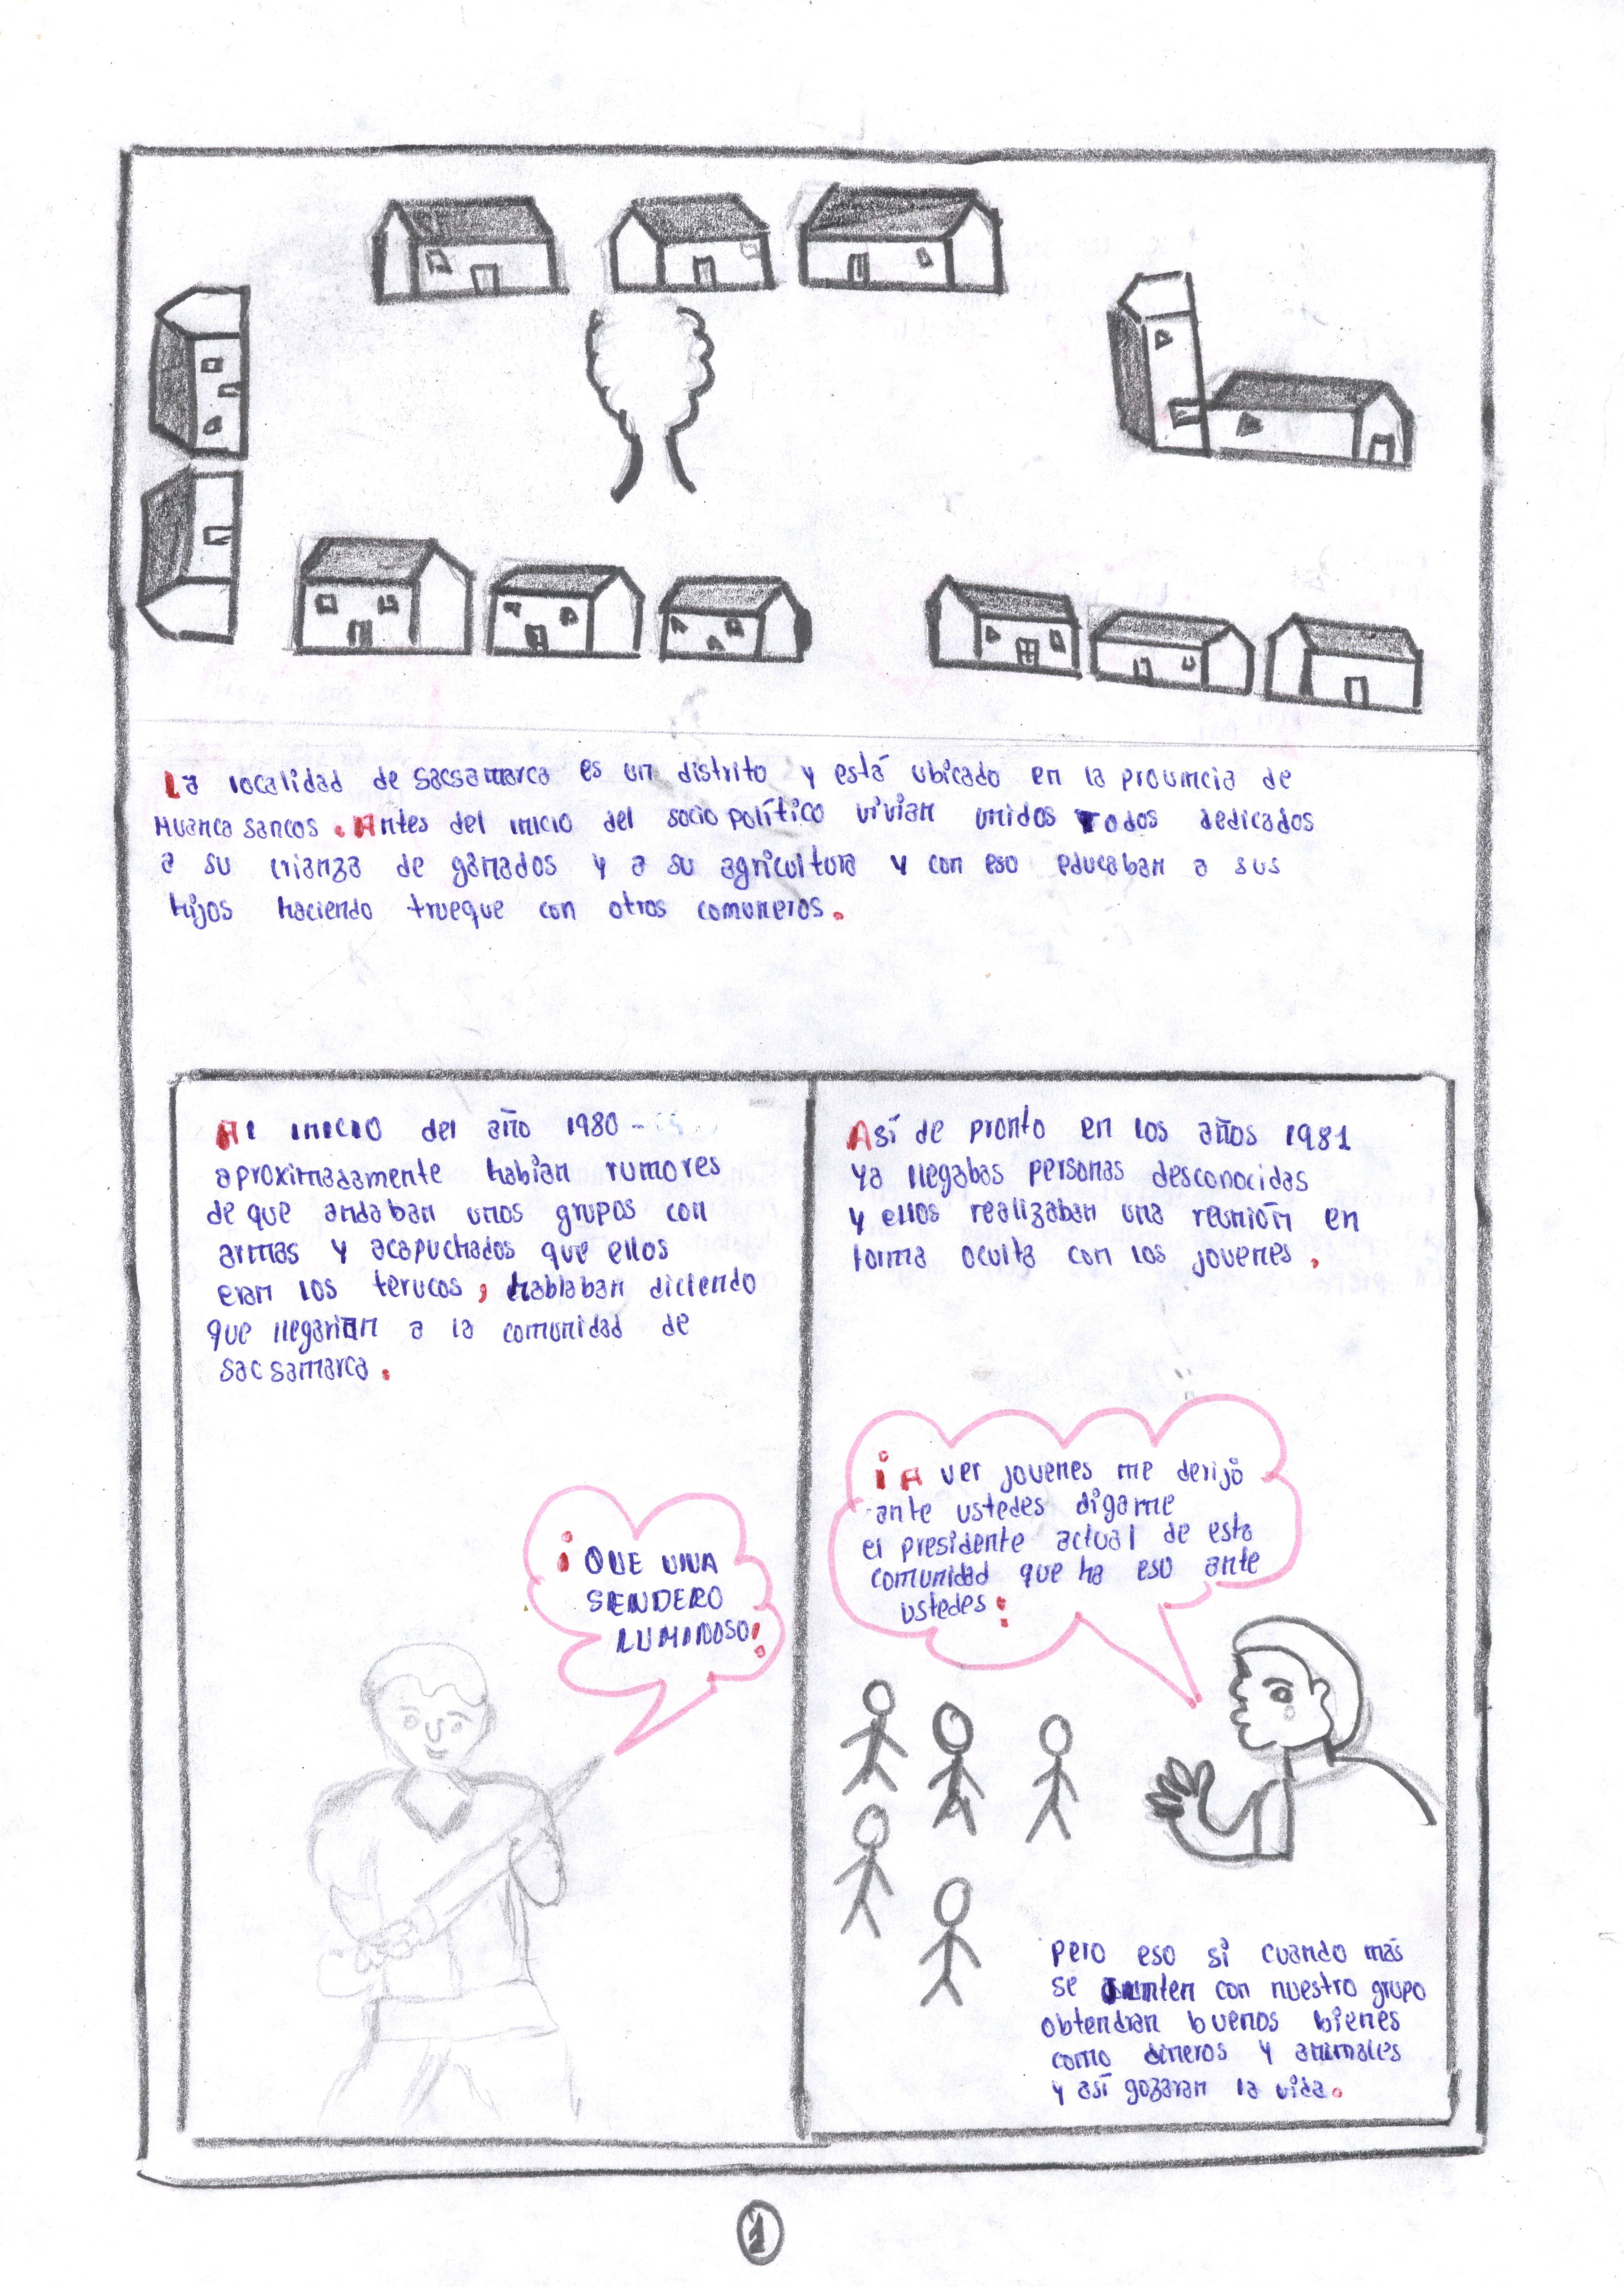 La localidad de Sacsamarca es un distrito y está ubicado en la provincia de
Huanca Sancos. Antes del inicio del socio político vivian unidos Todos dedicados
a su crianza de ganados y a su agricultura y con eso educaban a sus
hijos haciendo trueque con otros comuneros.
Al inicio del año 1980 -
aproximadamente habian rumores
de que andaban unos grupos con
armas y acapuchados que ellos
eran los terucos, hablaban diciendo
que llegarian a la comunidad de
Sacsamarca.
¡QUE VIVA
SENDERO
LUMINOSO!
Así de pronto en los años 1981
ya llegabas personas desconocidas
y ellos realizaban una reunión en
forma oculta con los jovenes.
¡A ver jovenes me derijo
ante ustedes digame
el presidente actual de esta
comunidad que ha eso ante
ustedes!
Pero eso si cuando más
se Junten con nuestro grupo
obtendran buenos bienes
como dineros y animales
y así gozaran la vida.
1